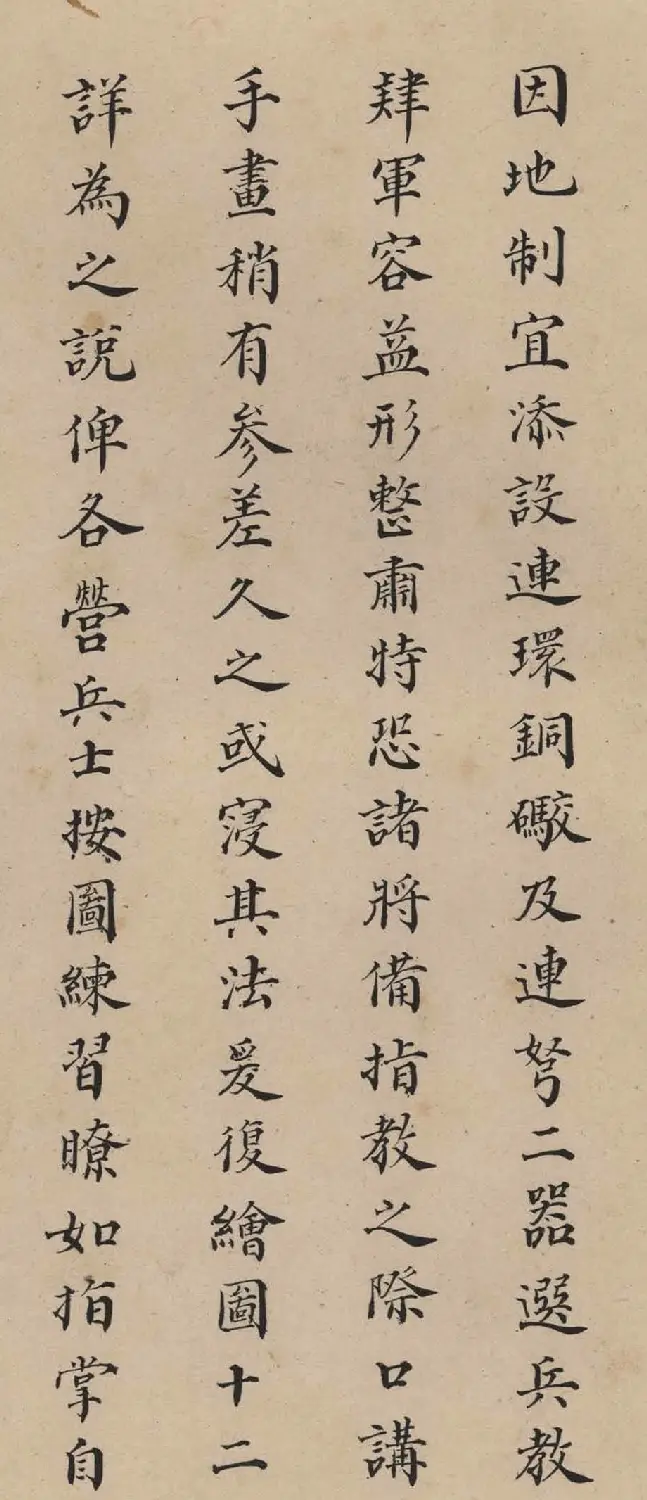 因地制宜添設連環銅礮及連弩二器選兵教
肄軍容益形整肅特恐諸將備指教之際口講
手畫稍有參差久之或寖其法爰復繪圖十二
詳為之說俾各營兵士按圖練習瞭如指掌自